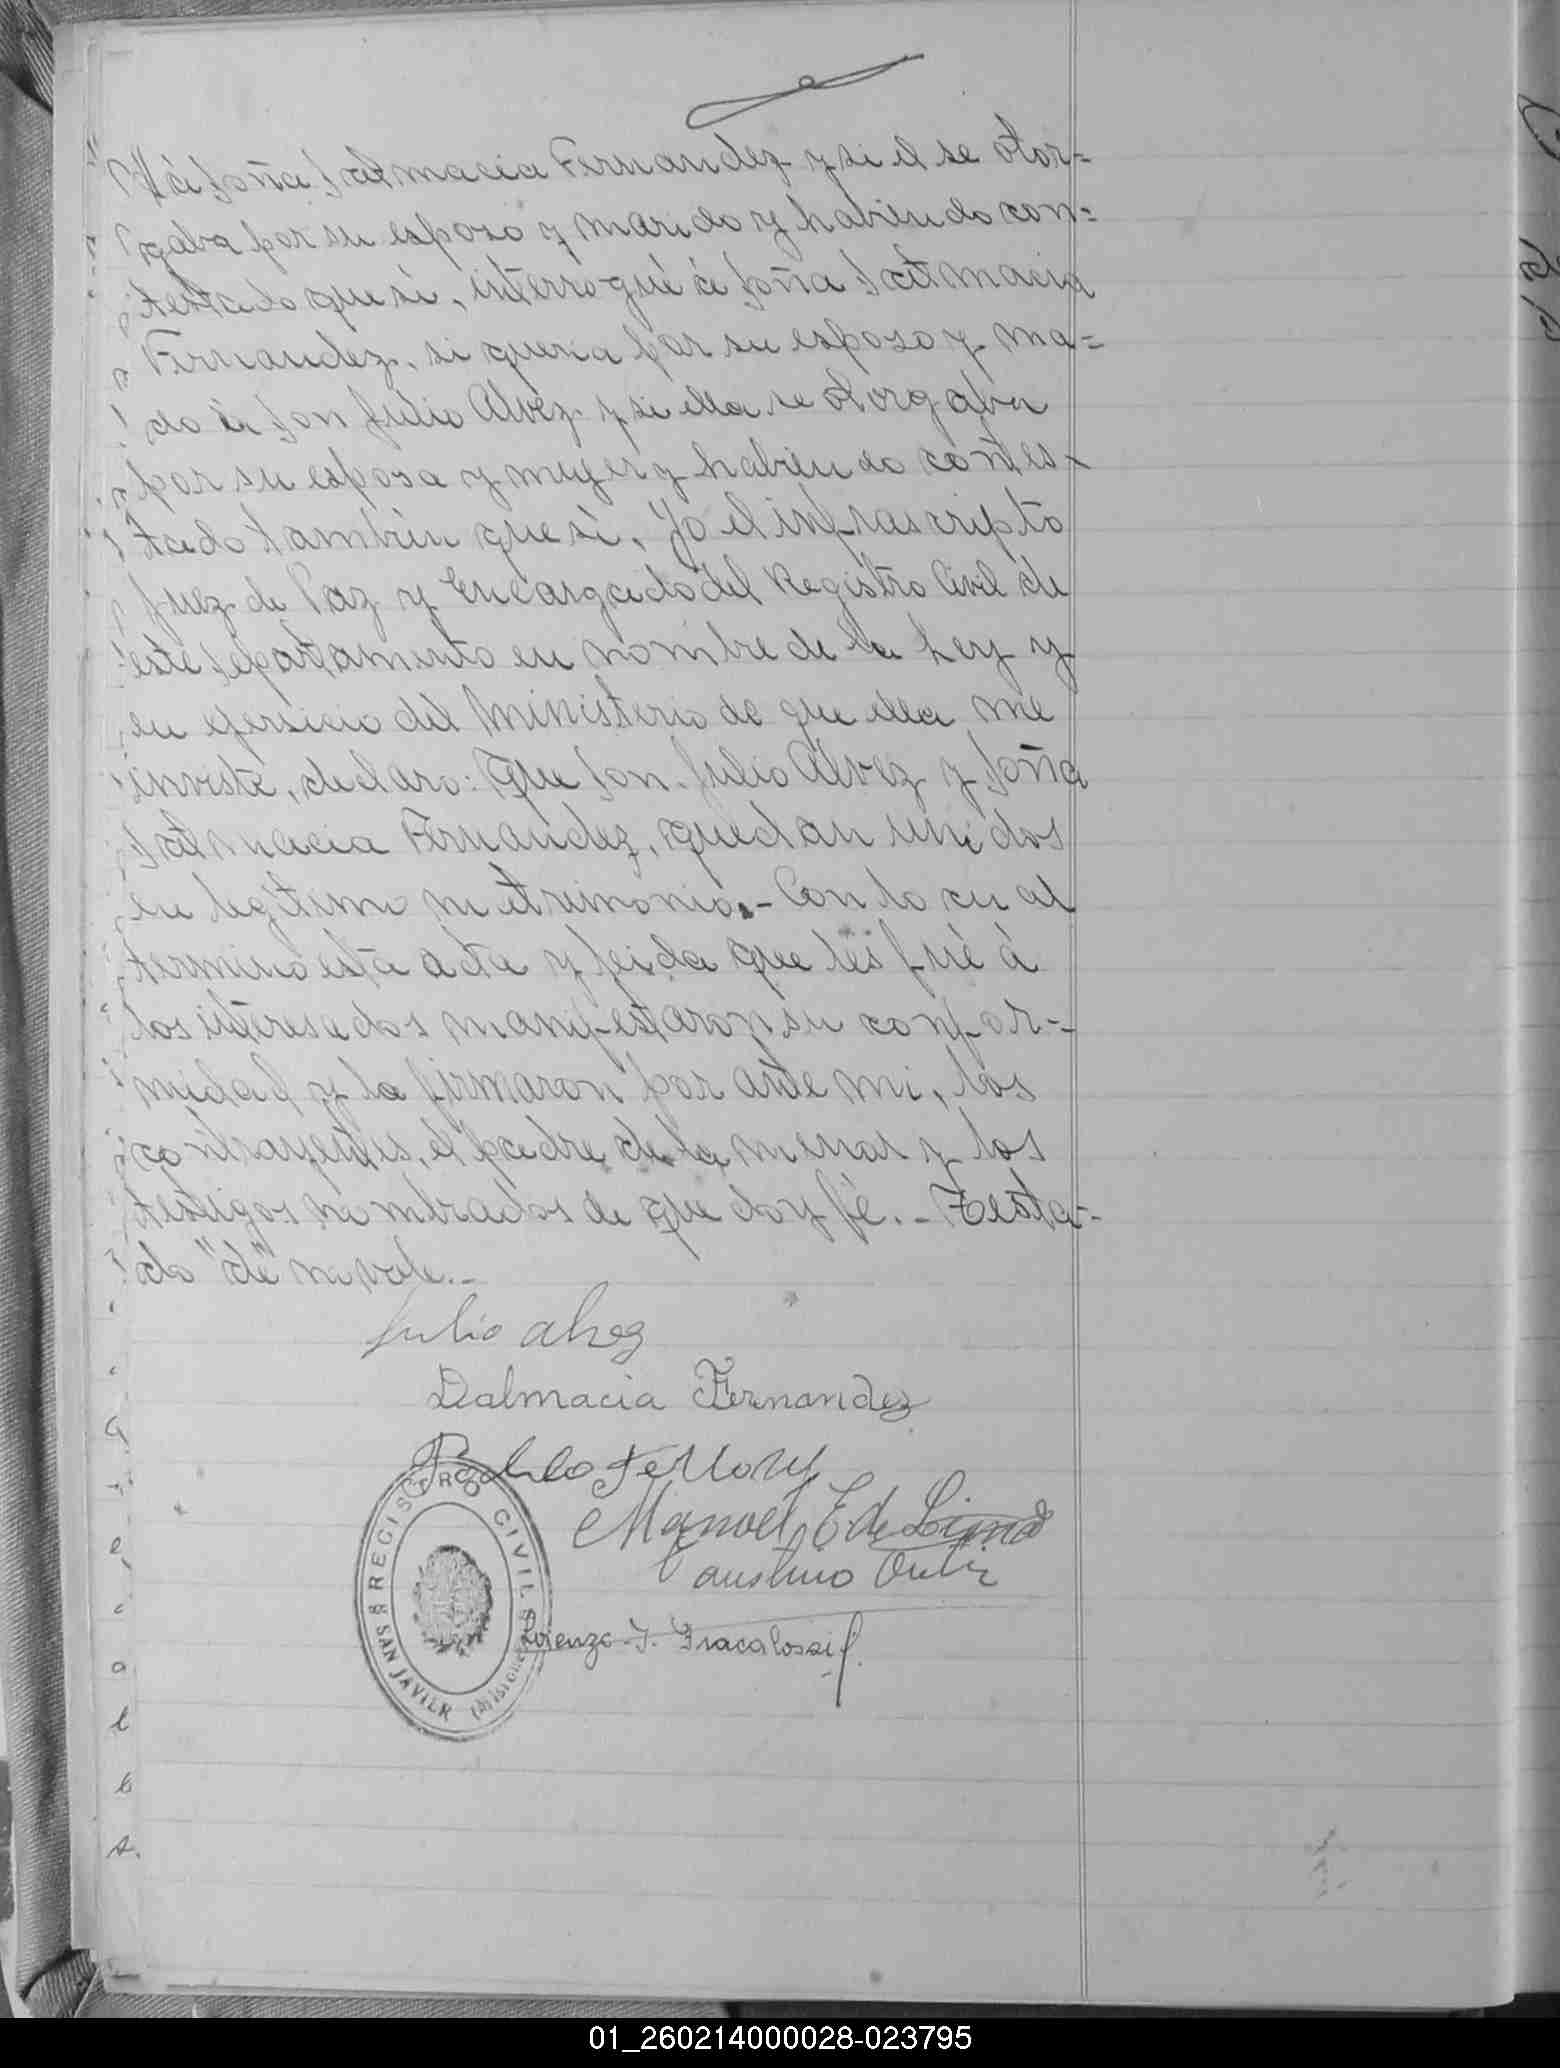 á Doña Dalmacia Fernandez y si el se otor=
gaba por su esposo y marido y habiendo con=
testado que si, interrogué á Doña Dalmacia
Fernandez, si queria por su esposo y ma=
do á Don Julio Alvez y si ella se otorgaba
por su esposa y mujer y habiendo contes-
tado tambien que si, Yo el infrascripto
Juez de Paz y Encargado del Registro Civil de
este Departamento en nombre de la Ley y
en ejersicio del Ministerio de que ella me
inviste, declaro: Que Don Julio Alvez y Doña
Dalmacia Fernandez, quedan unidos
en legitimo matrimonio.- Con lo cual
terminó esta acta y leida que les fué á
los interesados manifestaron su confor--
midad y la firmaron por ante mi, los
contrayentes, el padre de la menor y los
testigos nombrados de que doy fé.- Testa-
do "de" no vale.-
Julio alvez
Dalmacia Fernandez
Pablo
Manoel E de Lima
Faustino Ortiz
Lorenzo J. Fracalossi
REGISTRO CIVIL
SAN JAVIER Misiones
01_260214000028-023795